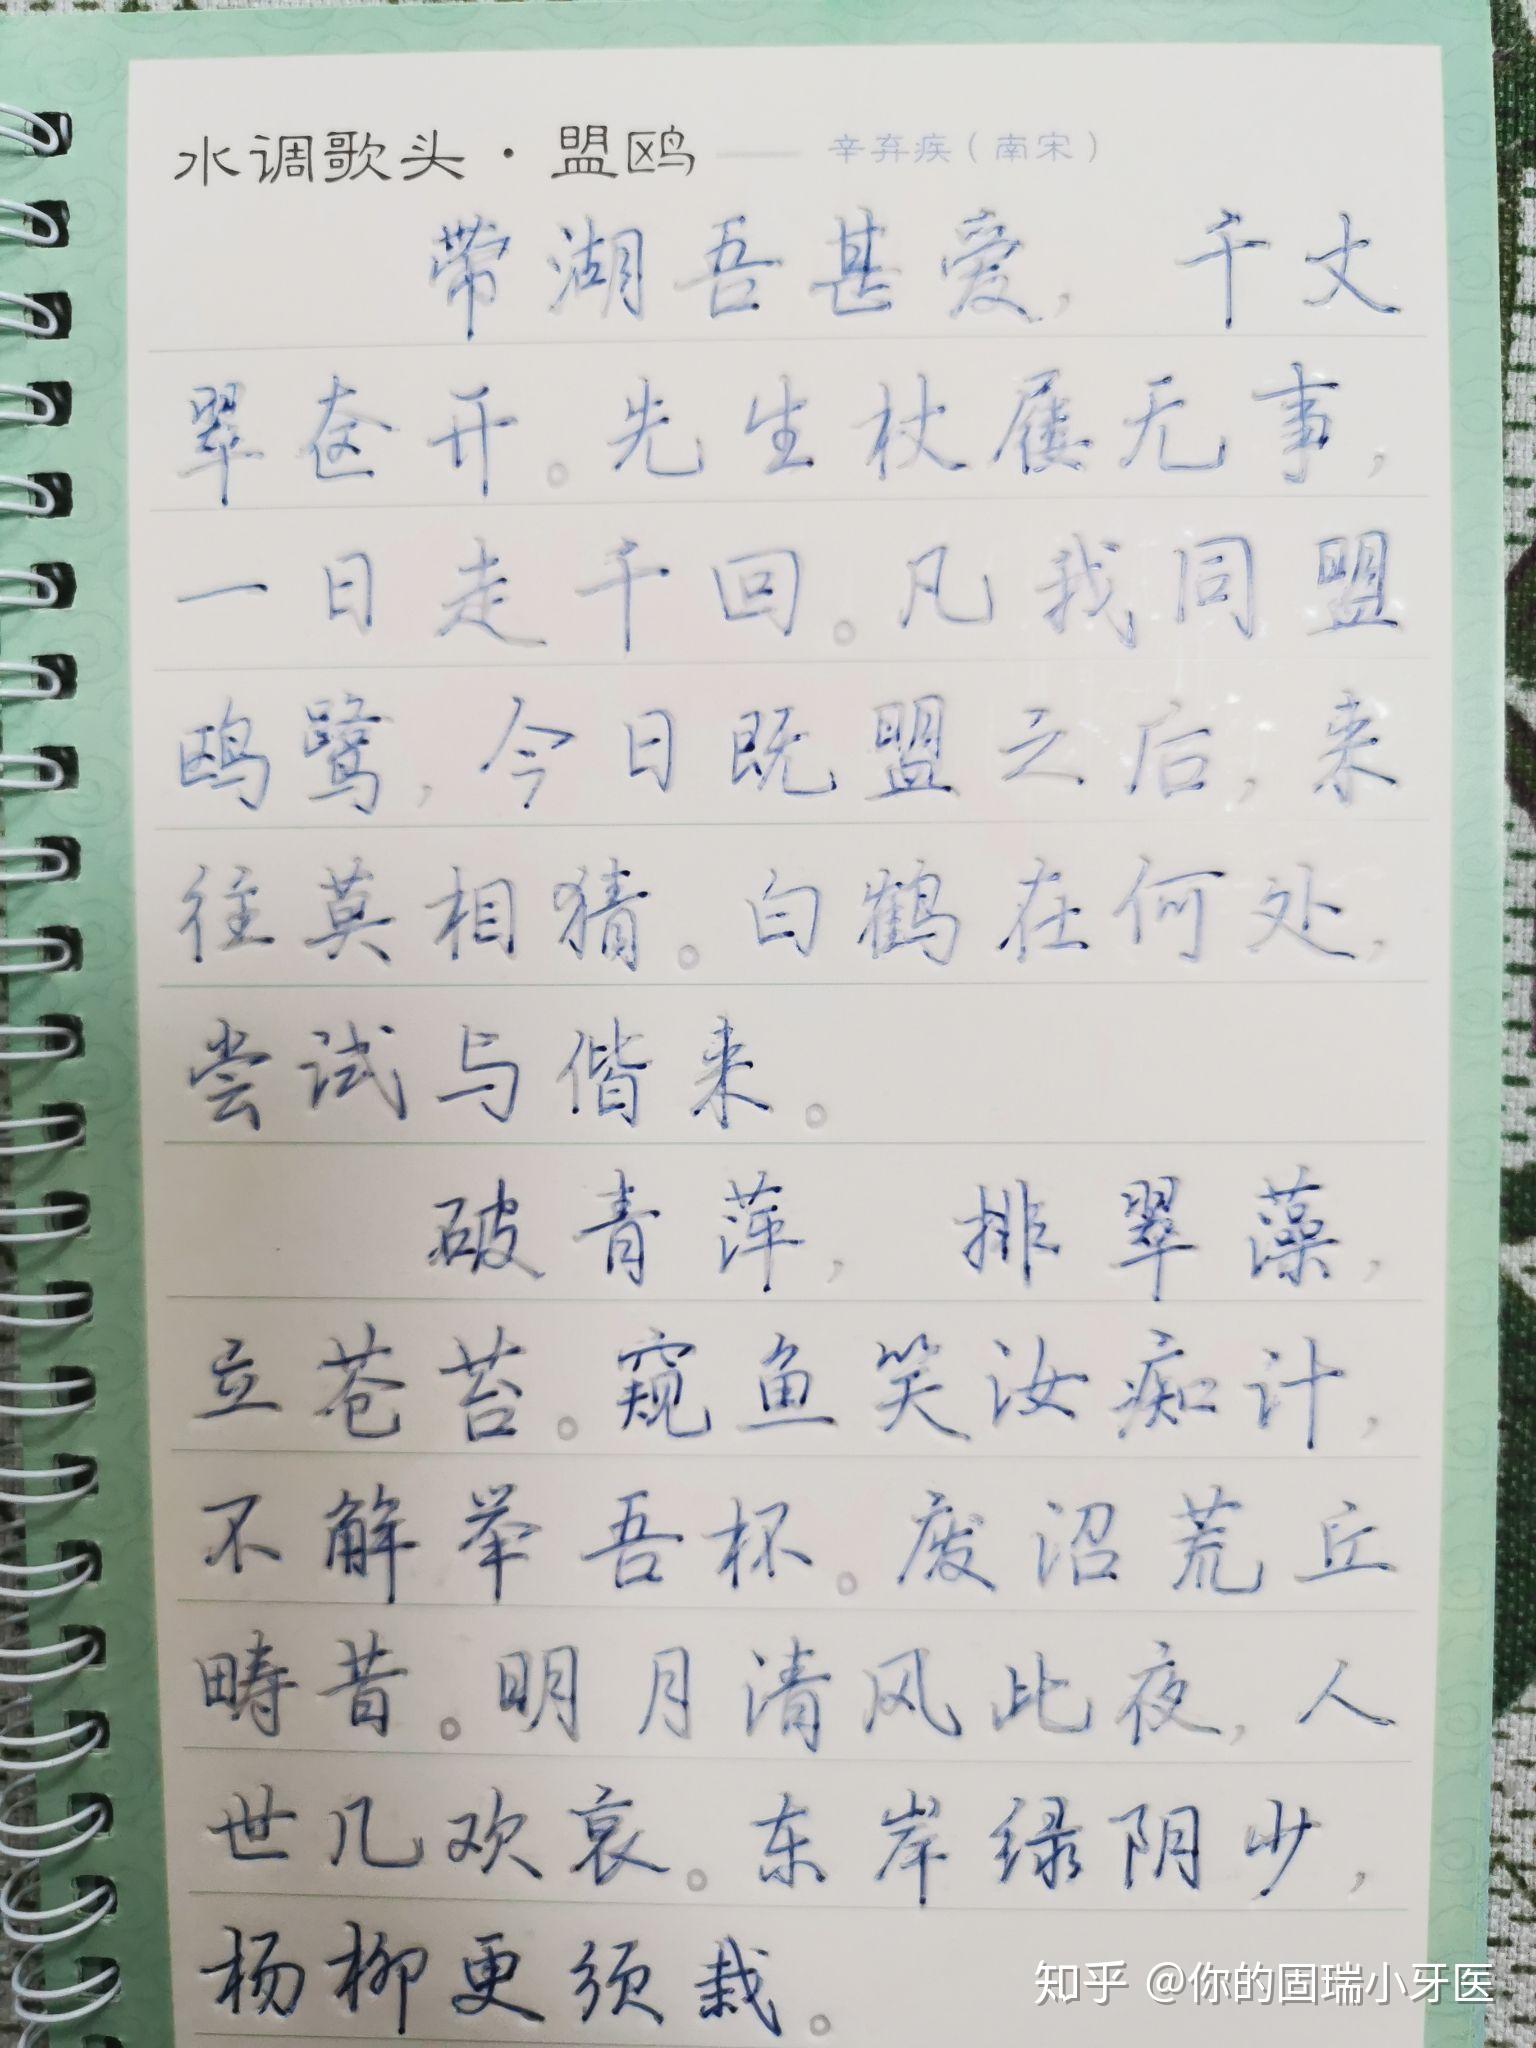 水调歌头·盟鸥——辛弃疾（南宋）
带湖吾甚爱，千丈
翠奁开。先生杖屦无事，
一日走千回。凡我同盟
鸥鹭，今日既盟之后，来
往莫相猜。白鹤在何处，
尝试与偕来。
破青萍，排翠藻，
立苍苔。窥鱼笑汝痴计，
不解举吾杯。废沼荒丘
畴昔。明月清风此夜，人
世几欢哀。东岸绿阴少，
杨柳更须栽。
知乎 @你的固瑞小牙医